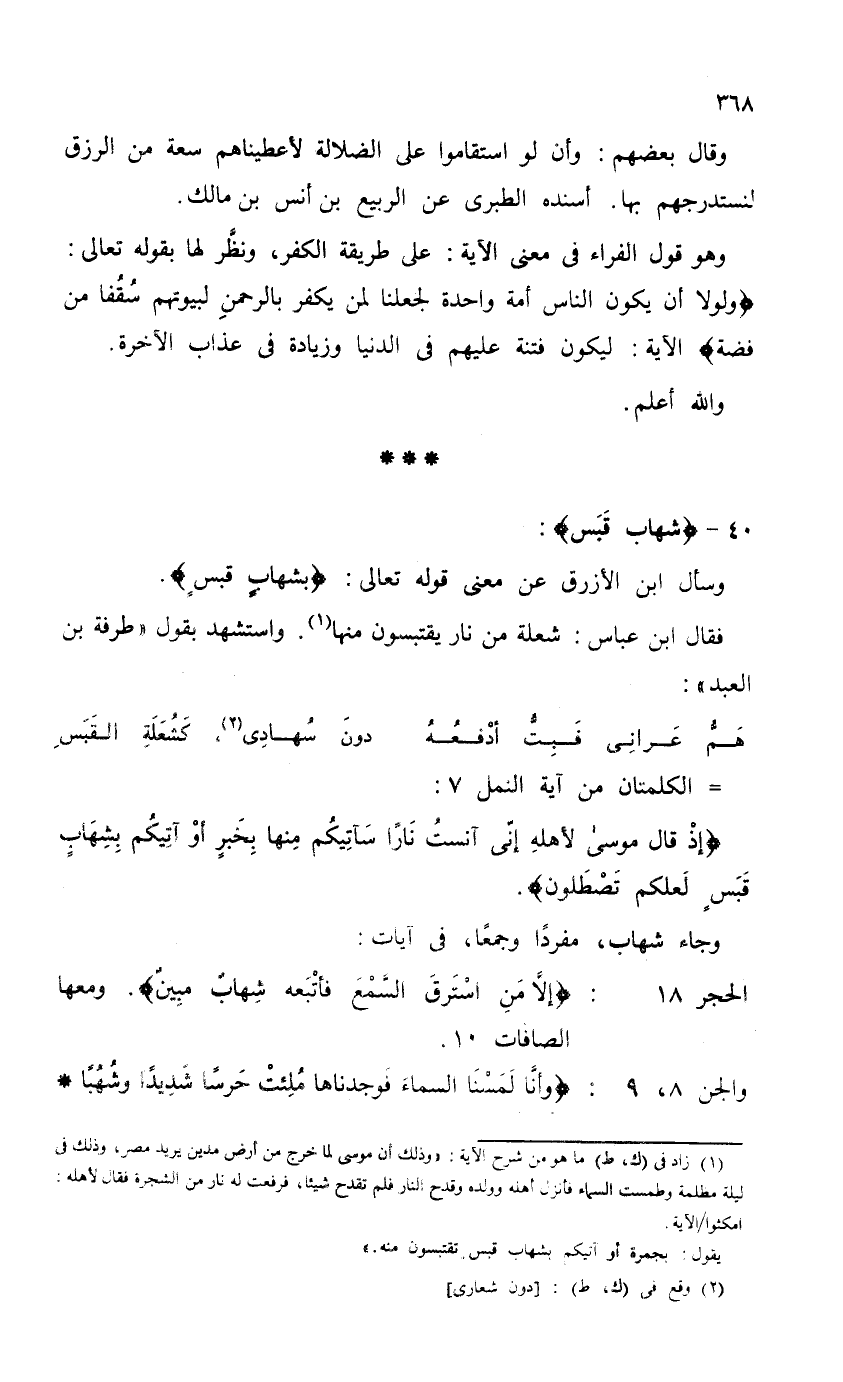 ٣٦٨
وقال بعضهم : وأن لو استقاموا على الضلالة لأعطيناهم سعة من الرزق
لنستدرجهم بها. أسنده الطبرى عن الربيع بن أنس بن مالك.
وهو قول الفراء فى معنى الآية : على طريقة الكفر، ونظَّر لها بقوله تعالى :
﴿ولولا أن يكون الناس أمة واحدة لجعلنا لمن يكفر بالرحمنِ لبيوتهم سُقُفا من
فضة﴾ الآية : ليكون فتنة عليهم فى الدنيا وزيادة فى عذاب الآخرة.
والله أعلم.
* * *
٤٠ - ﴿شهاب قَبَس﴾ :
وسأل ابن الأزرق عن معنى قوله تعالى : ﴿بشهابٍ قبسٍ﴾.
فقال ابن عباس : شعلة من نار يقتبسون منها(١). واستشهد بقول «طرفة بن
العبد» :
هَــمُّ عَــرانِـى فَــبِـتُّ أدْفـــعُـــهُ دونَ سُهــادِى(٢)، كَشُعَلَةِ الــقَبَسِ
= الكلمتان من آية النمل ٧ :
﴿إذْ قال موسىٰ لأهلهِ إنّى آنستُ نَارًا سَآتِيكُم مِنها بِخَبرٍ أوْ آتِيكُم بِشِهَابٍ
قَبَسٍ لَعلكم تَصْطَلون﴾.
وجاء شهاب، مفردًا وجمعًا، فى آيات :
الحجر ١٨ : ﴿إلَّا مَنِ اسْتَرقَ السَّمْعَ فأتْبَعه شِهابٌ مبِينٌ﴾. ومعها
الصافات ١٠.
والجن ٨، ٩ : ﴿وأنَّا لَمَسْنَا السماءَ فَوجدناها مُلِئتْ حَرسًا شَدِيدًا وشُهُبًا *
(١) زاد فى (ك، ط) ما هو من شرح الآية : «وذلك أن موسى لما خرج من أرض مدين يريد مصر، وذلك فى
ليلة مظلمة وطمست السماء فأنزل أهله وولده وقدح النار فلم تقدح شيئا، فرفعت له نار من الشجرة فقال لأهله :
امكثوا/الآية.
يقول : بجمرة أو آتيكم بشهاب قبس تقتبسون منه.»
(٢) وقع فى (ك، ط) : [دون شعارى]